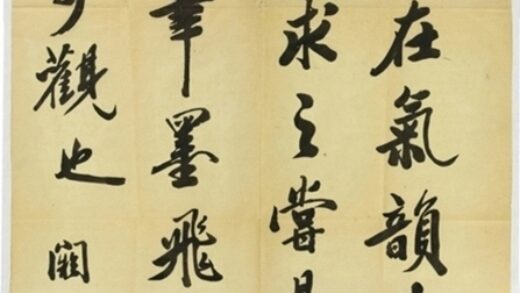 在氣韻
求之嘗
筆墨飛
觀也